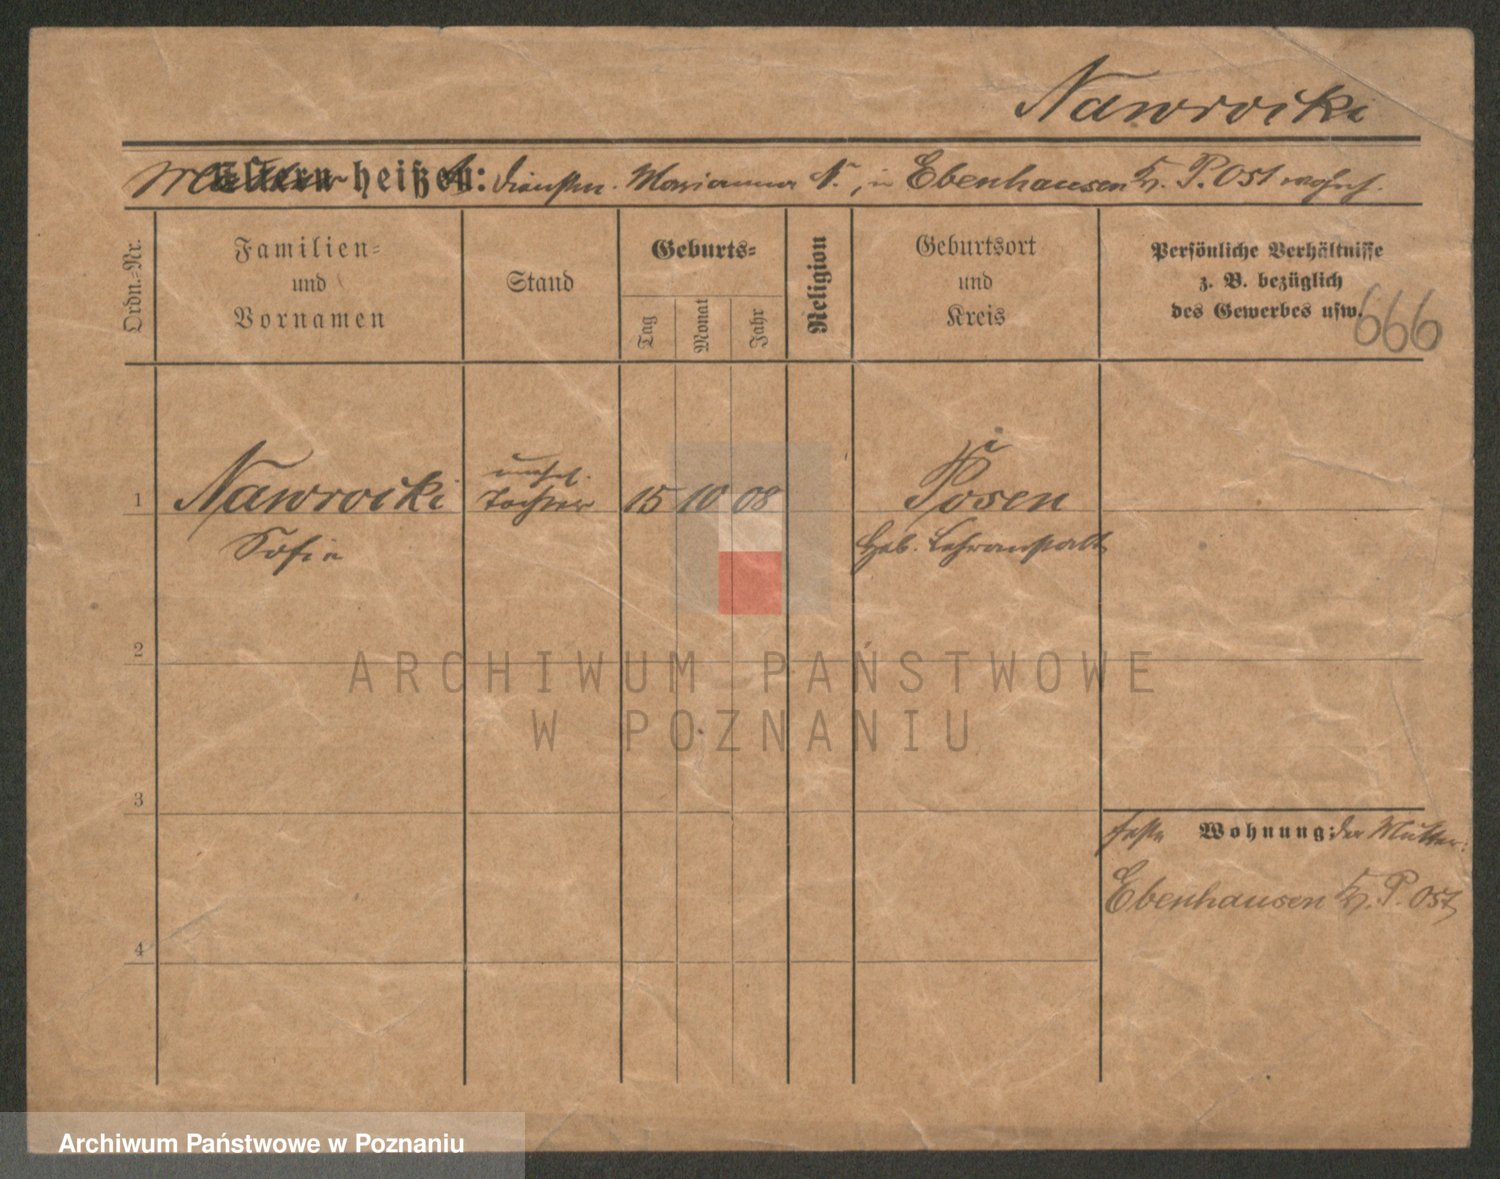 Nawrocki
Mutter heißt: Dienstm. Marianna N., in Ebenhausen Kr. P. Ost wohnh.
Ordn.-Nr.
Familien-
und
Vornamen
Stand
Geburts-
Tag
Monat
Jahr
Religion
Geburtsort
und
Kreis
Persönliche Verhältnisse
z. B. bezüglich
des Gewerbes usw.
666
1
Nawrocki
Sofie
unehel.
Tochter
15 10 08
Posen
Heb. Lehranstalt
2
3
4
feste Wohnung: der Mutter:
Ebenhausen Kr. P. Ost
ARCHIWUM PAŃSTWOWE
W POZNANIU
Archiwum Państwowe w Poznaniu